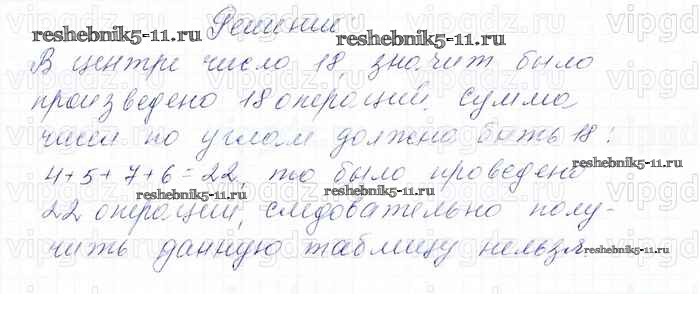 Решение
reshebnik5-11.ru reshebnik5-11.ru
В центре число 18, значит было
произведено 18 операций, сумма
чисел по углам должна быть 18:
4+5+7+6=22, то было проведено
reshebnik5-11.ru reshebnik5-11.ru reshebnik5-11.ru
22 операций, следовательно полу-
чить данную таблицу нельзя
reshebnik5-11.ru